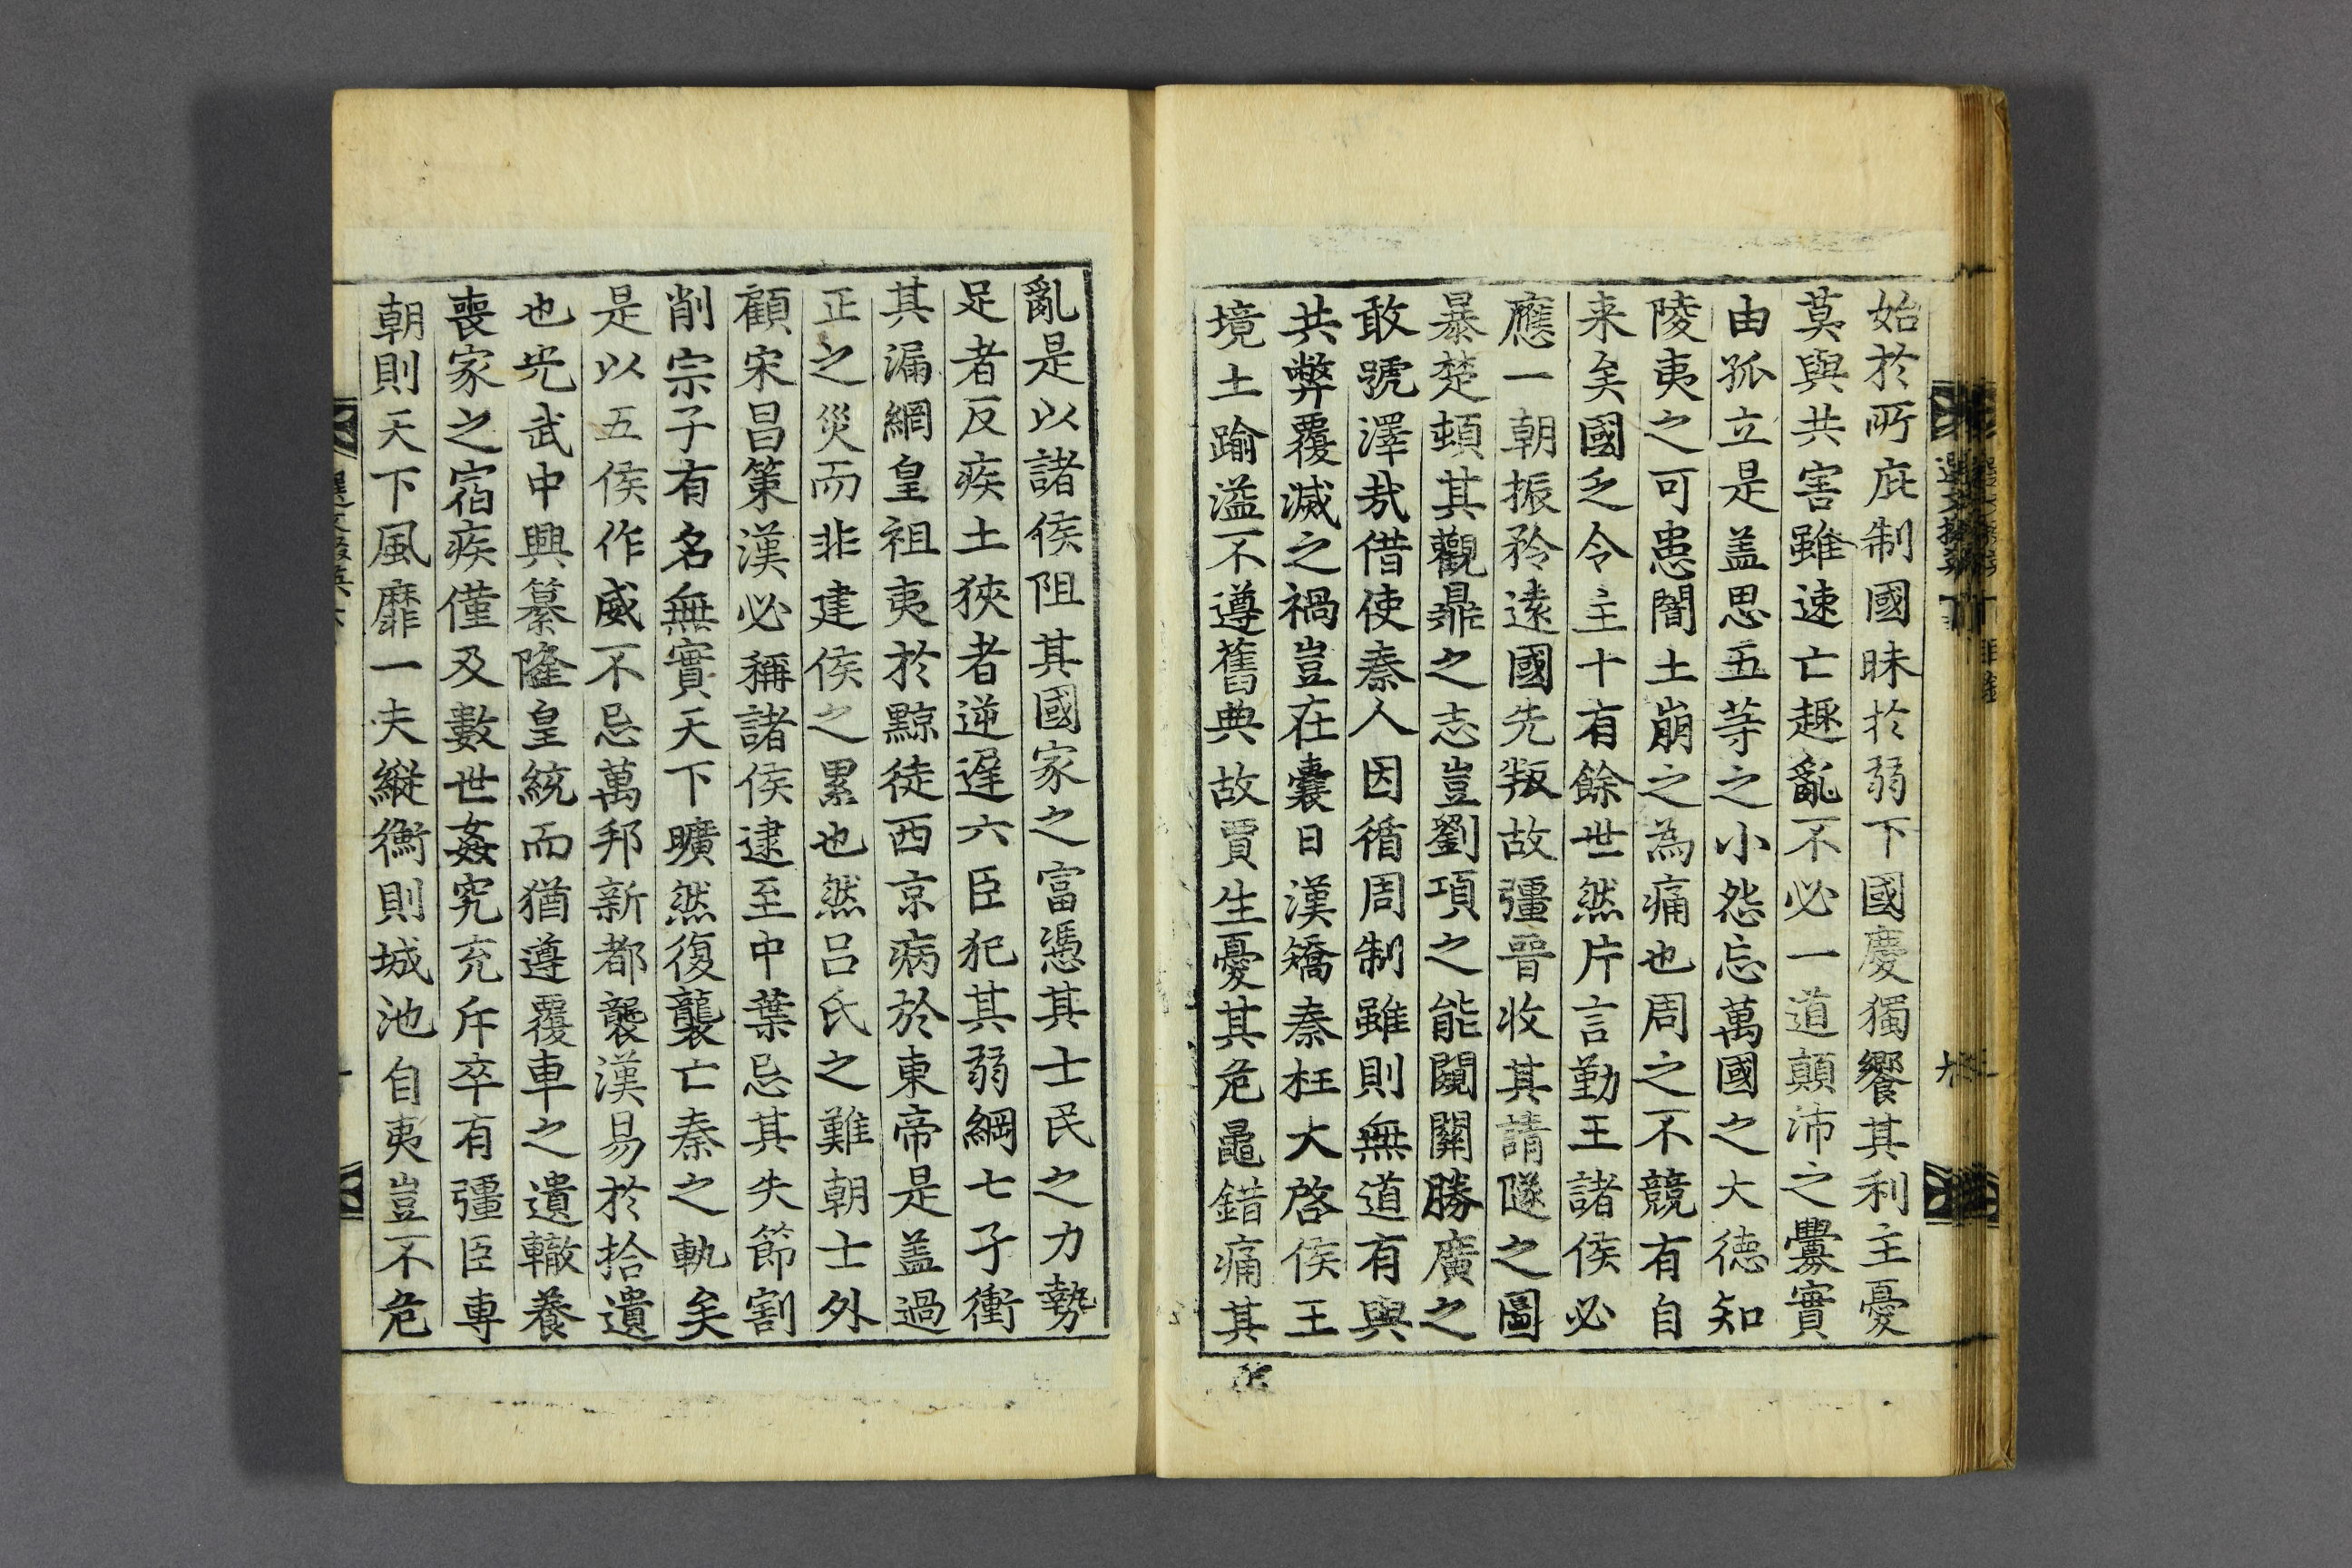 始於所庇制國昧於弱下國慶獨饗其利主憂
莫與共害雖速亡趣亂不必一道顛沛之釁實
由孤立是盖思五等之小怨忘萬國之大德知
陵夷之可患闇土崩之為痛也周之不競有自
来矣國乏令主十有餘世然片言勤王諸侯必
應一朝振矜遠國先叛故彊晉收其請隧之圖
暴楚頓其觀鼎之志豈劉項之能闚關勝廣之
敢號澤哉借使秦人因循周制雖則無道有與
共弊覆滅之禍豈在曩日漢矯秦枉大啓侯王
境土踰溢不遵舊典故賈生憂其危鼂錯痛其
亂是以諸侯阻其國家之富憑其士民之力勢
足者反疾土狹者逆遲六臣犯其弱綱七子衝
其漏網皇祖夷於黥徒西京病於東帝是盖過
正之災而非建侯之累也然呂氏之難朝士外
顧宋昌策漢必稱諸侯逮至中葉忌其失節割
削宗子有名無實天下曠然復襲亡秦之軌矣
是以五侯作威不忌萬邦新都襲漢易於拾遺
也光武中興纂隆皇統而猶遵覆車之遺轍養
喪家之宿疾僅及數世姦宄充斥卒有彊臣專
朝則天下風靡一夫縱衡則城池自夷豈不危